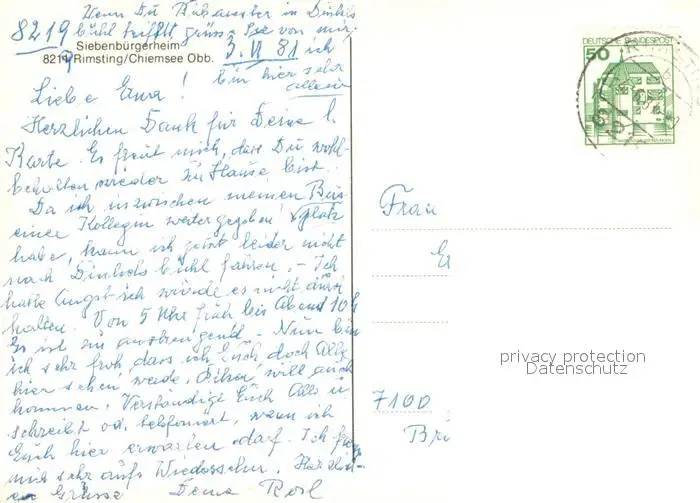 Wenn Du Bekannter in Dinkels
bühl triffst, grüsse sie von mir,
8219
3. VI 81 ich
Siebenbürgerheim
8211 Rimsting/Chiemsee Obb.
bin hier sehr
allein
Liebe Erna!
Herzlichen Dank für Deine l.
Karte. Es freut mich, dass Du wohl-
behalten wieder zu Hause bist.
Da ich inzwischen meinen Bus
einer Kollegin weiter gegeben platz
habe, kann ich jetzt leider nicht
nach Dinkelsbühl fahren. – Ich
hatte Angst ich würde es nicht durch
halten. Von 5 Uhr früh bis Abend 10 h
Es ist zu anstrengend. – Nun bin
ich sehr froh, dass ich Euch doch Alle
hier sehen werde. will auch
kommen. Verständigt Euch Alle u
schreibt od. telefoniert, wann ich
Euch hier erwarten darf. Ich freu
mich sehr aufs Wiedersehn. Herzlich
en Grüsse Deine Rosl
DEUTSCHE BUNDESPOST
50
Frau
7100
privacy protection
Datenschutz